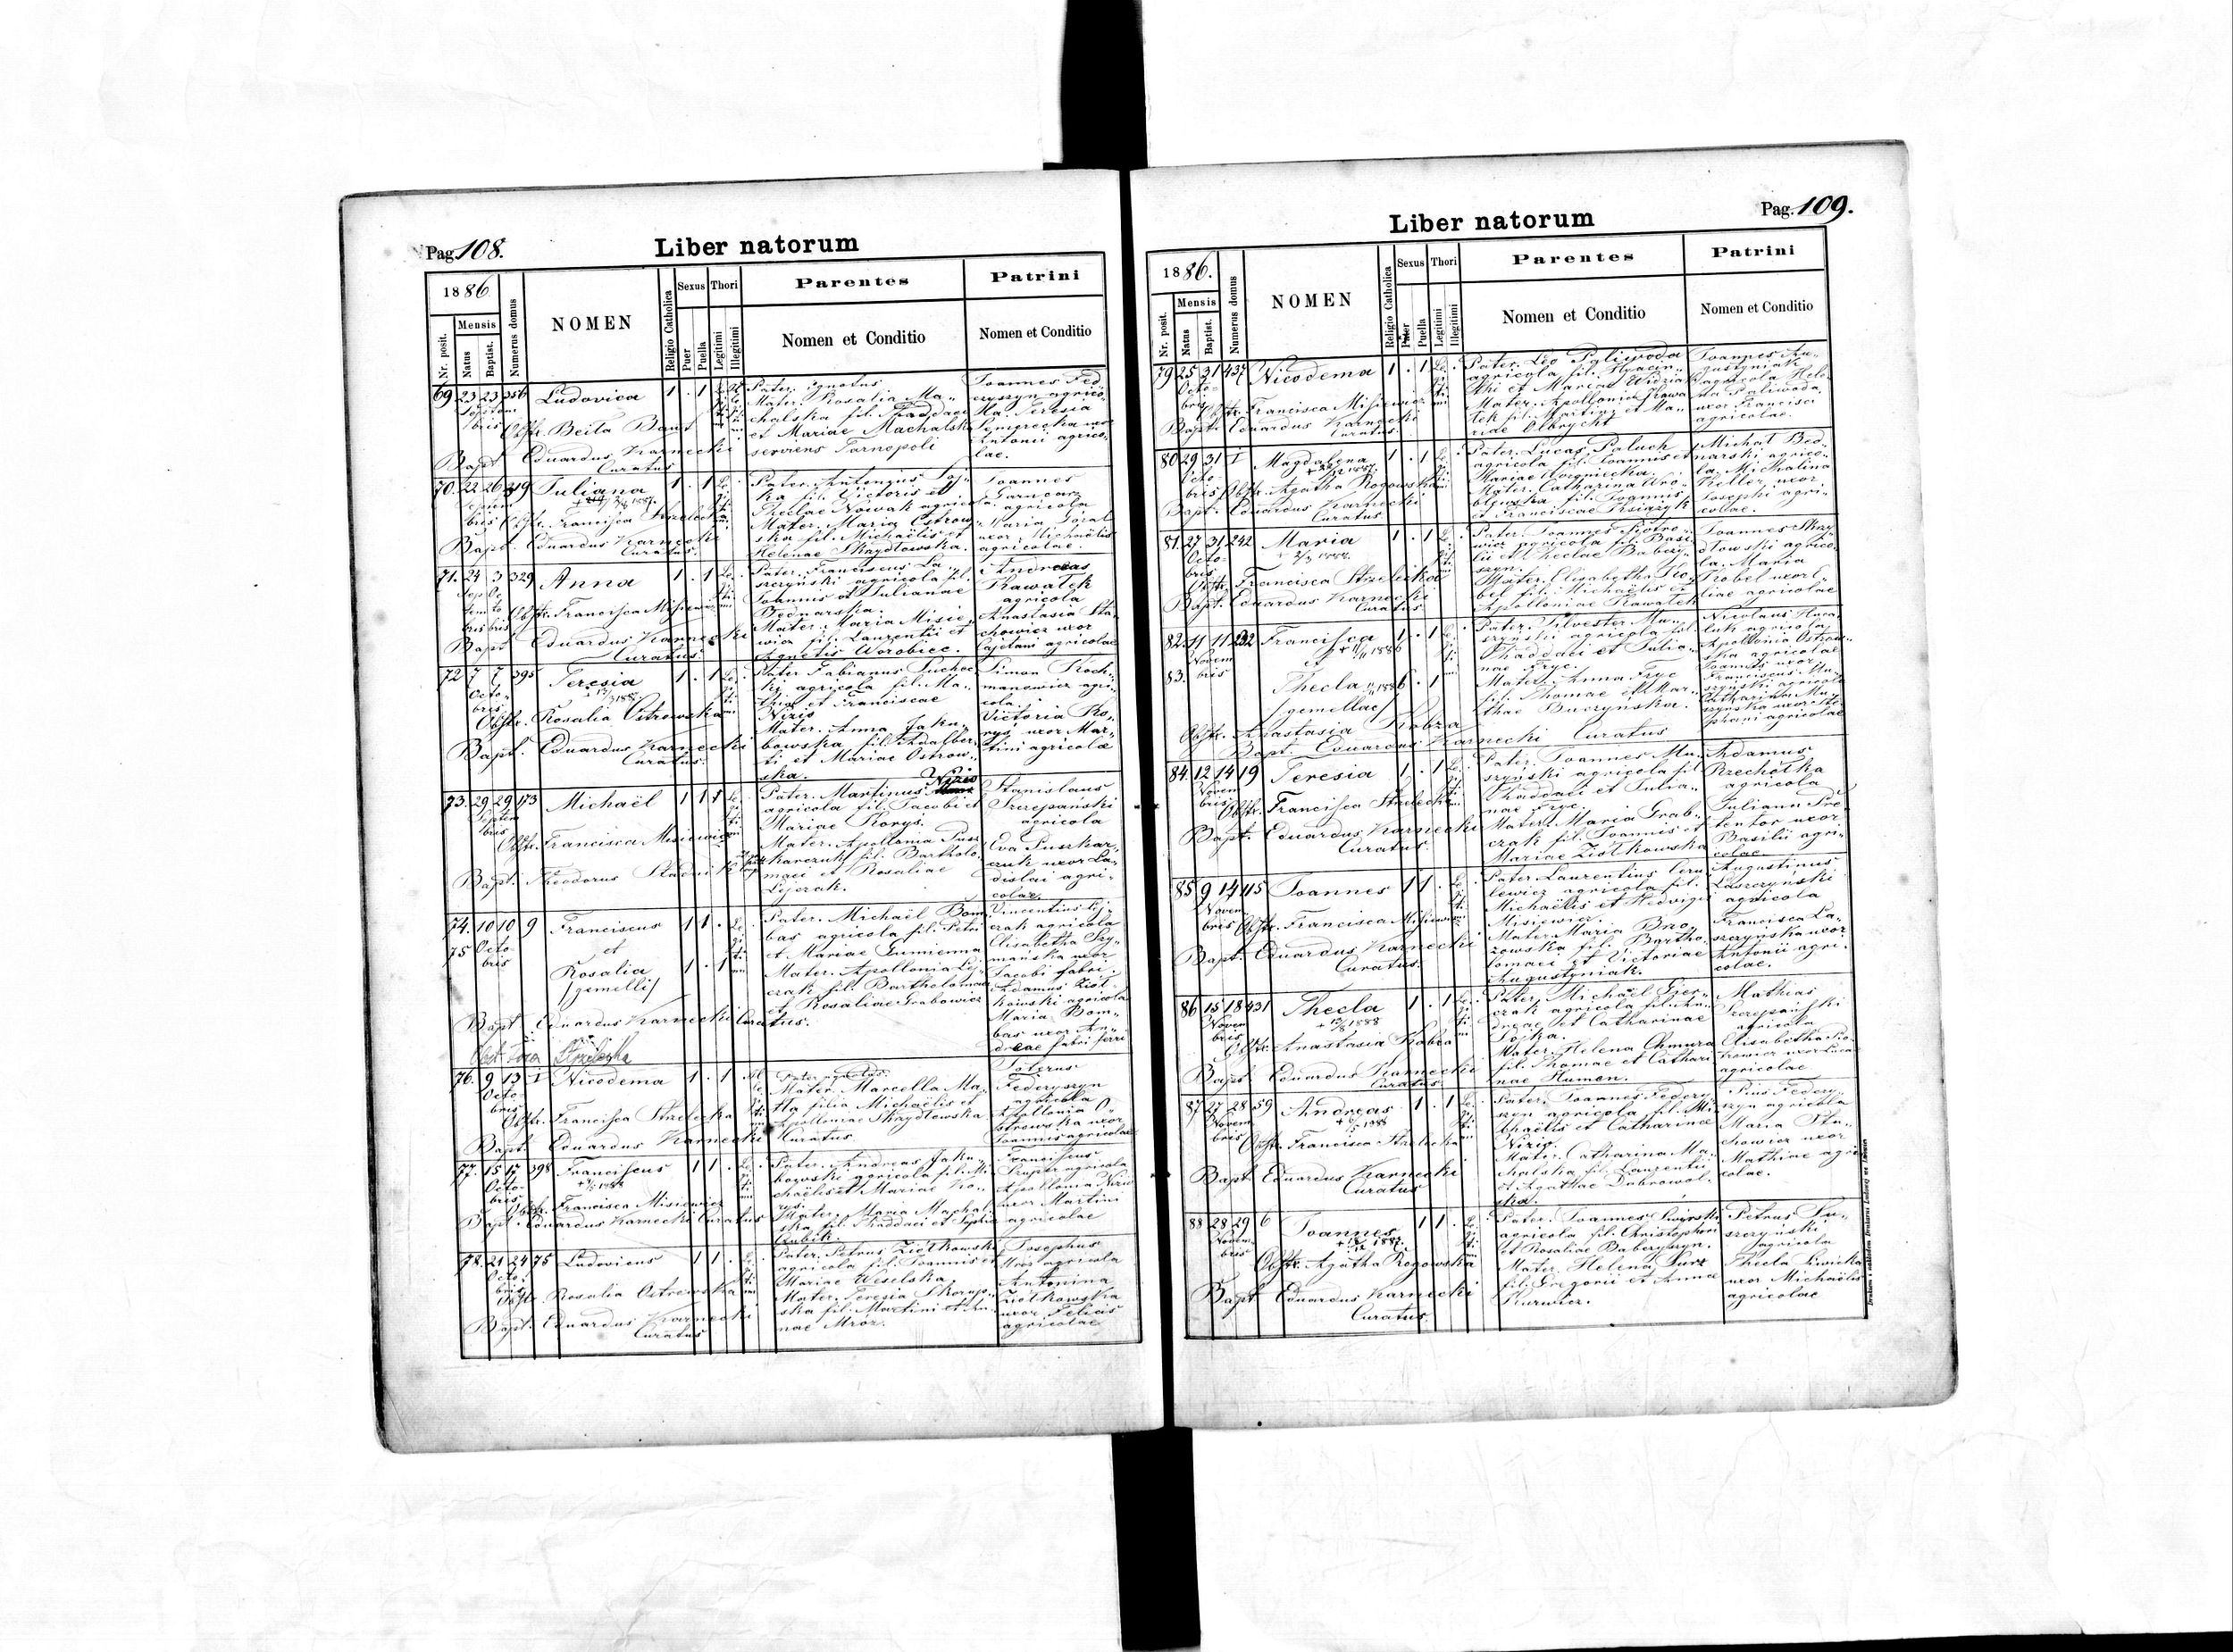 Pag. 108.
Liber natorum
1886
Nr. posit.
Mensis
Natus
Baptist.
Numerus domus
NOMEN
Religio Catholica
Sexus
Puer
Puella
Thori
Legitimi
Illegitimi
Parentes
Nomen et Conditio
Patrini
Nomen et Conditio
69 23 23 356 Ludovica 1 . 1
Septembris
Obstr. Beila
Bapt. Eduardus Karnecki
Curatus
Pater. ignotus
Mater. Rosalia Ma-
chalska fil. Thaddaei
et Mariae Machalska
serviens Tarnopoli
Joannes Fed-
eryszyn agrico-
la Teresia
uxor
Antonii agrico-
lae.
70. 22 26 Juliana 1 . 1
Septembris
Obstr. Francisca Strzelecka
Bapt. Eduardus Karnecki
Curatus.
Pater. Antonius
fil. Victoris et
Theclae Nowak agricola.
Mater. Maria Ostrow-
ska fil. Michaëlis et
Helenae Skrydłowska.
Joannes
Garncarz
agricola
Maria Góral
uxor Michaëlis
agricolae.
71. 24 3 329 Anna 1 . 1
Obstr. Francisca Misiewicz
Bapt. Eduardus Karnecki
Curatus.
Pater. Franciscus La-
szczyński agricola fil.
Joannis et Julianae
Bednarska.
Mater. Maria Misie-
wicz fil. Laurentii et
Agnetis Worobiec.
Andreas
Kawałek
agricola
Anastasia Sta-
chowicz uxor
Cajetani agricolae
72 7 7 395 Teresia 1 . 1
Octobris
Obstr. Rosalia Ostrowska
Bapt. Eduardus Karnecki
Curatus.
Pater Fabianus Suchec-
ki agricola fil. Ma-
et Franciscae
Nizio
Mater. Anna Jaku-
bowska fil. Adalber-
ti et Mariae Ostrow-
ska.
Simon Koch-
manowicz agri-
cola.
Victoria Ko-
rys uxor Mar-
tini agricolae
73. 29 29 173 Michaël 1 1
Septembris
Obstr. Francisca Misiewicz
Bapt. Theodorus
Pater. Martinus Nizio
agricola fil. Jacobi et
Mariae Korys.
Mater. Apollonia Pusz-
karczuk fil. Bartholo-
maei et Rosaliae
Lejczak.
Stanislaus
Szczepański
agricola
Eva Puszkar-
czuk uxor La-
dislai agri-
colae.
74. 10 10 9 Franciscus 1 1 .
75 Octobris
et
Rosalia 1 . 1
/gemelli/
Bapt. Eduardus Karnecki Curatus.
Obst. Strzelecka
Pater. Michaël Bom-
bas agricola fil. Petri
et Mariae Gumienna
Mater. Apollonia Lej-
czak fil. Bartholomaei
et Rosaliae Grabowicz
Vincentius Lej-
czak agricola
Elisabetha Szy-
mańska uxor
Jacobi fabri.
Adamus Ziół-
kowski agricola
Maria Bom-
bas uxor An-
dreae fabri ferri
76. 9 13 I Nicodema 1 . 1
Octobris
Obstr. Francisca Strzelecka
Bapt. Eduardus Karnecki Curatus.
Pater ignotus.
Mater. Marcella Ma-
filia Michaëlis et
Apolloniae Skrydłowska
Soterus
Federyszyn
agricola
Apollonia O-
strowska uxor
Joannis agricolae
77. 15 17 398 Franciscus 1 1 .
Octobris
Obstr. Francisca Misiewicz
Bapt. Eduardus Karnecki Curatus
Pater. Andreas Jaku-
bowski agricola fil. Mi-
chaëlis et Mariae Ko-
rys.
Mater. Maria Machal-
ska fil. Thaddaei et Sophiae
Kubik.
Franciscus
agricola
Apollonia Nizio
uxor Martini
agricolae
78. 21 24 75 Ludovicus 1 1 .
Octobris
Obstr. Rosalia Ostrowska
Bapt. Eduardus Karnecki
Curatus
Pater. Petrus Ziółkowski
agricola fil. Joannis et
Mariae Weselska.
Mater. Teresia
ska fil. Martini et An-
nae Mróz.
Josephus
Mróz agricola
Antonina
Ziółkowska
uxor Felicis
agricolae
Pag. 109.
Liber natorum
1886.
Nr. posit.
Mensis
Natus
Baptist.
Numerus domus
NOMEN
Religio Catholica
Sexus
Puer
Puella
Thori
Legitimi
Illegitimi
Parentes
Nomen et Conditio
Patrini
Nomen et Conditio
79 25 31 437 Nicodema 1 . 1
Octobris
Obstr. Francisca Misiewicz
Bapt. Eduardus Karnecki
Curatus.
Pater. Leo Paliwoda
agricola fil. Hyacin-
thi et Mariae
Mater. Apollonia Kawa-
łek fil. Martini et Ma-
riae Olbrycht
Joannes Au-
gustyniak
agricola Hele-
na Paliwoda
uxor Francisci
agricolae.
80 29 31 I Magdalena 1 . 1
Octobris
Obstr. Agatha Rogowska
Bapt. Eduardus Karnecki
Curatus
Pater. Lucas Paluch
agricola fil. Joannis et
Mariae
Mater. Catharina Wró-
blewska fil. Joannis
et Franciscae Książyk
Michał Bed-
narski agrico-
la. Michalina
Keller uxor
Josephi agri-
colae.
81. 27 31 242 Maria 1 . 1
Octobris
Obstr. Francisca Strzelecka
Bapt. Eduardus Karnecki
Curatus
Pater. Joannes Piotro-
wicz agricola fil. Basi-
lii et Theclae Babery-
szyn.
Mater. Elisabetha Ko-
bel fil. Michaëlis et
Apolloniae Kawałek
Joannes Skry-
dłowski agrico-
la. Maria
Kobel uxor E-
liae agricolae
82. 11 11 232 Francisca 1 . 1
Novembris
et
83. Thecla 1 . 1
/gemellae/
Obstr. Anastasia Kobza
Bapt. Eduardus Karnecki Curatus
Pater. Silvester Mu-
szyński agricola fil.
Thaddaei et Julia-
nae Fryc.
Mater. Anna Fryc
fil. Thomae et Mar-
thae Buczyńska.
Nicolaus
agricola
Apollonia Ostrow-
ska agricolae
Joannis uxor
Franciscus Mu-
szyński agricola
Catharina Mu-
szyńska uxor Ste-
phani agricolae
84. 12 14 19 Teresia 1 . 1
Novembris
Obstr. Francisca Strzelecka
Bapt. Eduardus Karnecki
Curatus.
Pater. Joannes Mu-
szyński agricola fil.
Thaddaei et Julia-
nae Fryc.
Mater. Maria Grab-
czak fil. Joannis et
Mariae Ziółkowska
Adamus
Rzechółka
agricola
Juliann
uxor
Basilii agri-
colae
85 9 14 115 Joannes 1 1 .
Novembris
Obstr. Francisca Misiewicz
Bapt. Eduardus Karnecki
Curatus.
Pater Laurentius
agricola fil.
Michaëlis et Hedvigis
Misiewicz.
Mater. Maria Brzo-
zowska fil. Bartho-
lomaei et Victoriae
Augustyniak.
Augustinus
Laszczyński
agricola
Francisca La-
szczyńska uxor
Antonii agri-
colae.
86 15 18 431 Thecla 1 . 1
Novembris
Obstr. Anastasia Kobza
Bapt. Eduardus Karnecki
Curatus.
Pater. Michaël
agricola fil. An-
dreae et Catharinae
Mater. Helena Chmura
fil. Thomae et Cathari-
nae Humen.
Mathias
Szczepański
agricola
Elisabetha Pio-
trowicz uxor Lucae
agricolae
87 27 28 59 Andreas 1 . 1
Novembris
Obstr. Francisca Strzelecka
Bapt. Eduardus Karnecki
Curatus
Pater. Joannes Federy-
szyn agricola fil. Mi-
chaëlis et Catharinae
Nizio.
Mater. Catharina Ma-
chalska fil. Laurentii
et Agathae Dabrowol-
ska.
Pius Federy-
szyn agricola
Maria Sta-
chowicz uxor
Mathiae agri-
colae.
88 28 29 6 Joannes 1 1 .
Novembris
Obstr. Agatha Rogowska
Bapt. Eduardus Karnecki
Curatus.
Pater. Joannes
agricola fil. Christophori
et Rosaliae Baberyszyn.
Mater. Helena
fil. Gregorii et Annae
Kurwicz.
Petrus Lu-
szczyński
agricola
Thecla
uxor Michaëlis
agricolae